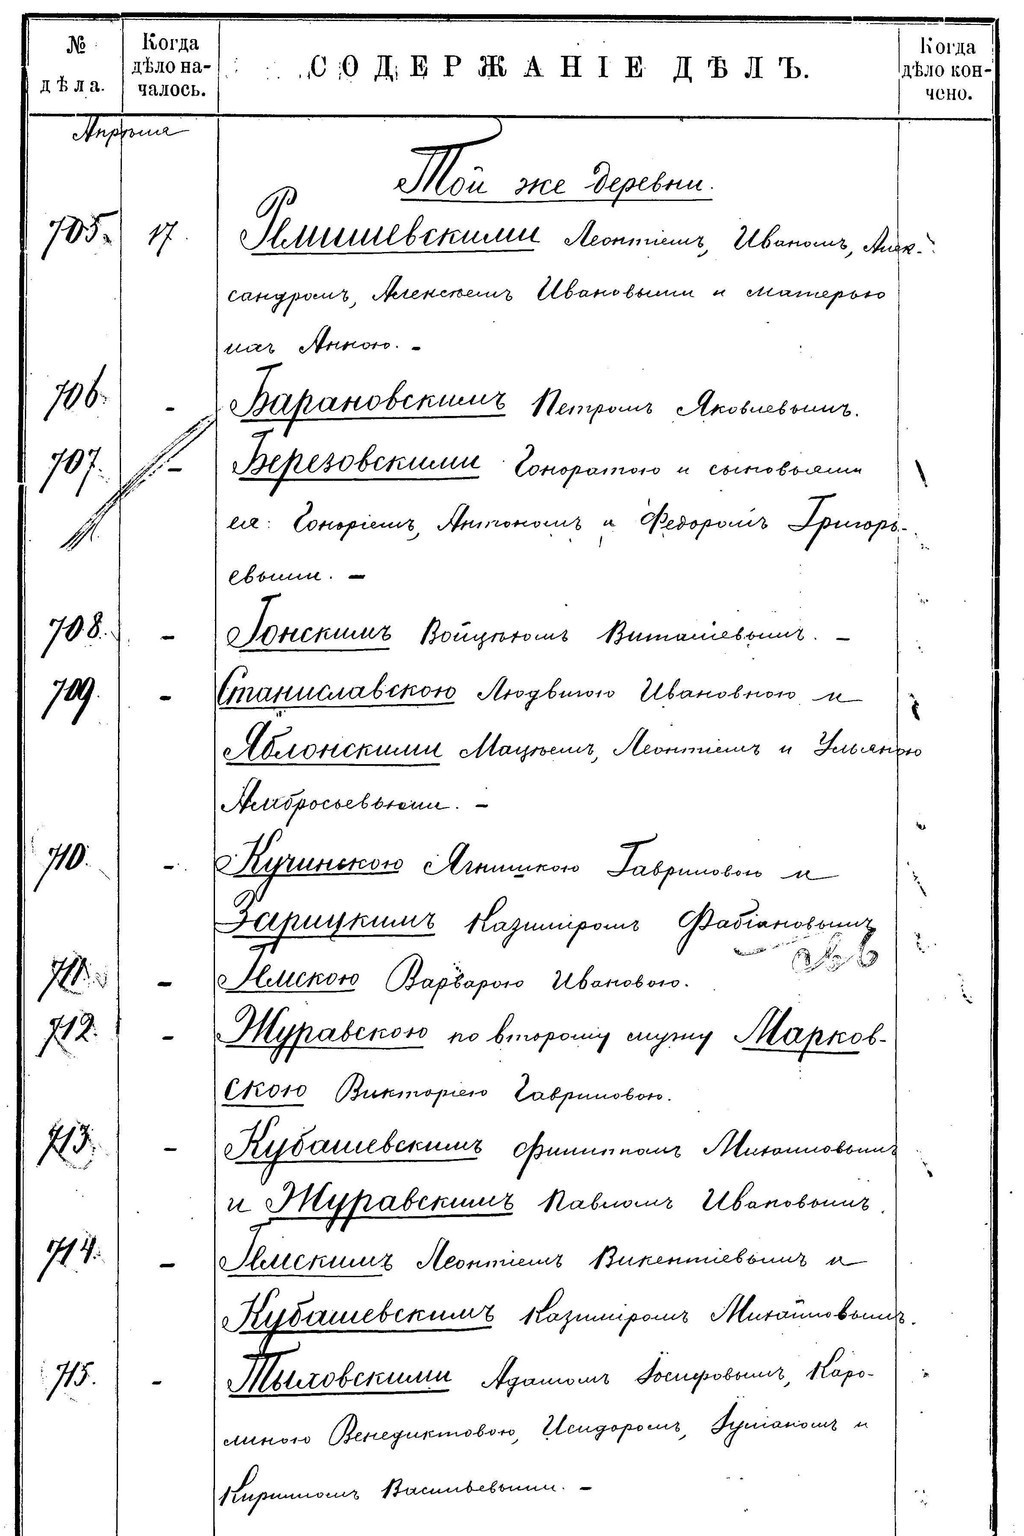 №
дѣла.
Когда
дѣло на-
чалось.
СОДЕРЖАНІЕ ДѢЛЪ.
Когда
дѣло кон-
чено.
Апрѣля
Той же деревни.
705. 17. Ямишевскими Леонтіемъ, Иваномъ, Алек-
сандромъ, Алексѣемъ Ивановыми и матерью
ихъ Анною. –
706. - Барановскимъ Петромъ Яковлевымъ.
707. - Березовскими Гоноратою и сыновьями
ея: Гоноріемъ, Антономъ и Федоромъ Григорь-
евыми. –
708. - Гонскимъ Войцѣхомъ Виталіевымъ. –
709. - Станиславскою Людвигою Ивановною и
Яблонскими Мацѣемъ, Леонтіемъ и Ульяною
Амбросьевыми. –
710. - Кучинскою Агнишкою Гавриловою и
Зарицкимъ Казиміромъ Фабіановымъ
711. - Ямскою Варварою Ивановою.
712. - Журавскою по второму мужу Марков-
скою Викторіею Гавриловою.
713. - Кубашевскимъ Филиппомъ Михайловымъ
и Журавскимъ Павломъ Ивановымъ.
714. - Ямскимъ Леонтіемъ Викентіевымъ и
Кубашевскимъ Казиміромъ Михайловымъ.
715. - Тыховскими Адамомъ Іосифовымъ, Каро-
линою Венедиктовою, Исидоромъ, и
Кириломъ Васильевыми. –